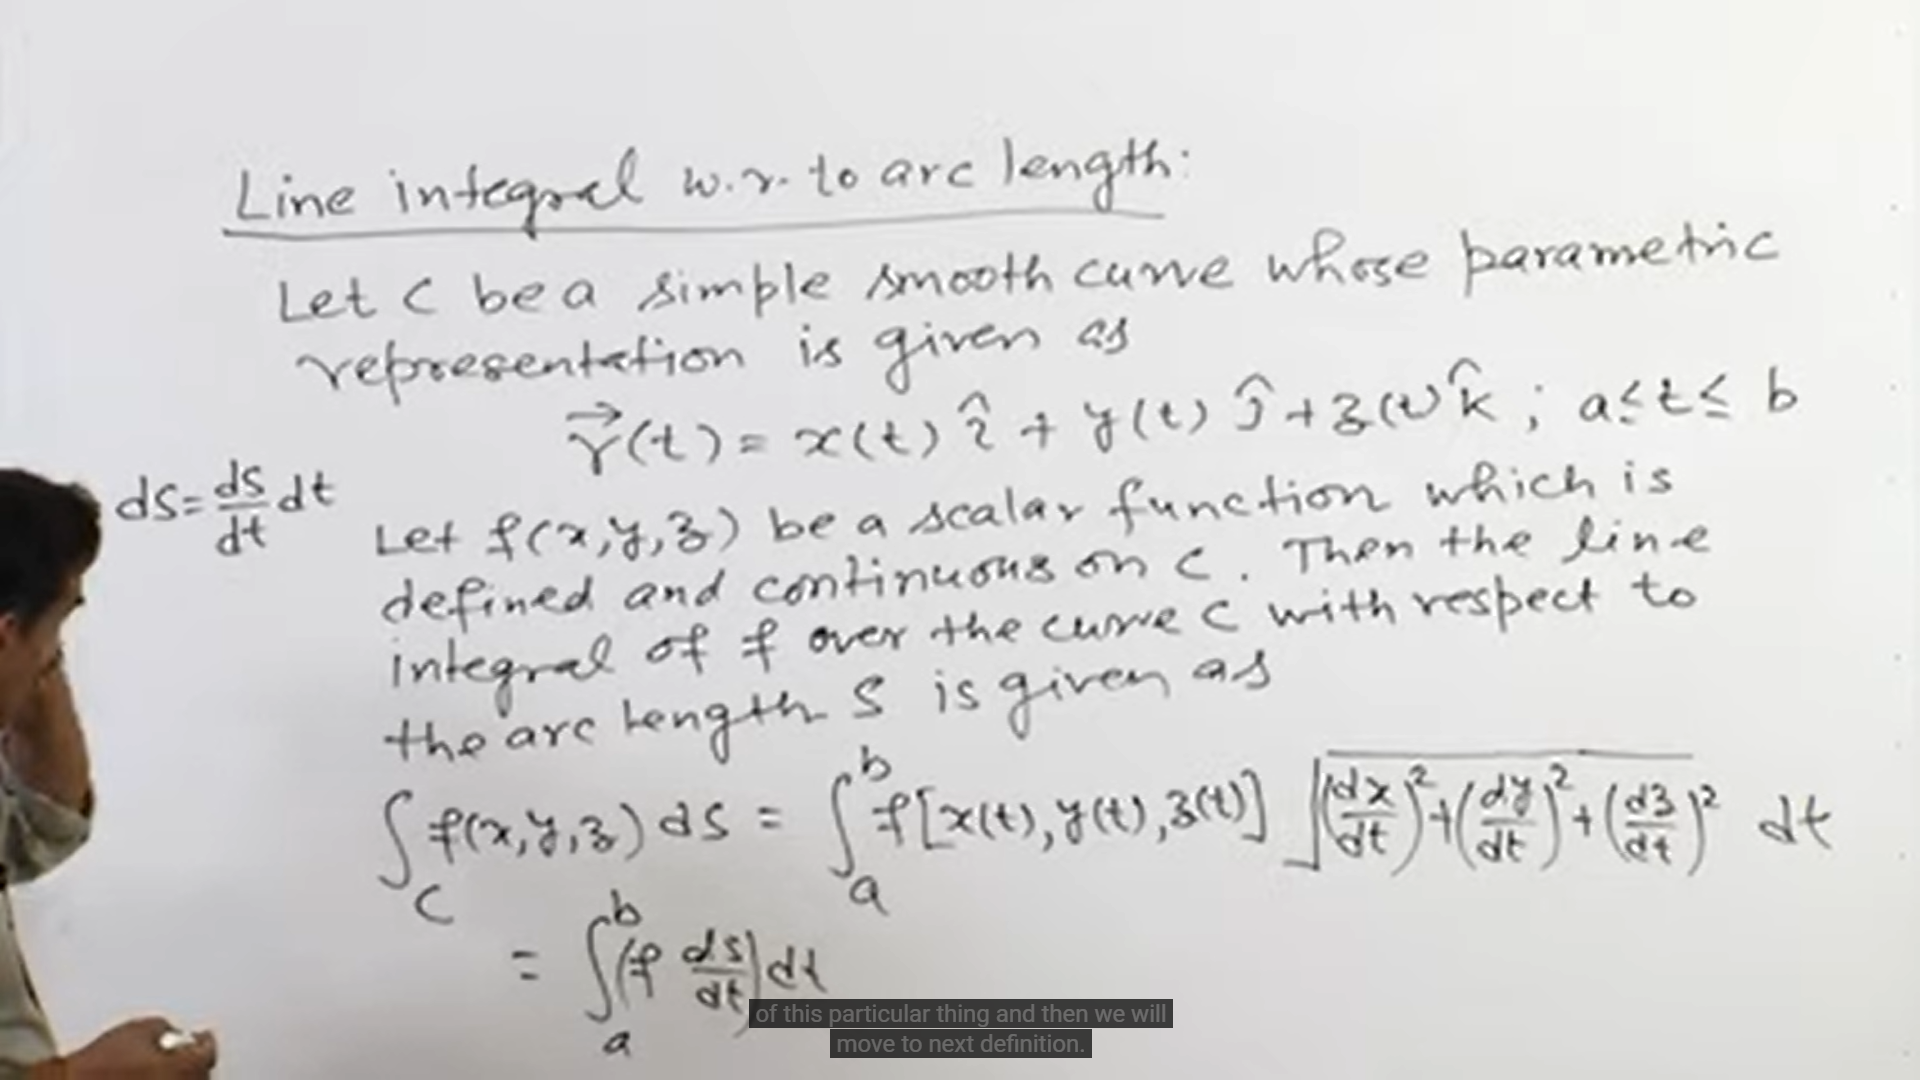 Line integral w.r. to arc length:
Let C be a simple smooth curve whose parametric
representation is given as
r⃗(t) = x(t) î + y(t) ĵ + z(t) k̂ ; a ≤ t ≤ b
ds = ds/dt dt
Let f(x,y,z) be a scalar function which is
defined and continuous on C. Then the line
integral of f over the curve C with respect to
the arc length S is given as
∫_C f(x,y,z) ds = ∫_a^b f[x(t), y(t), z(t)] √((dx/dt)² + (dy/dt)² + (dz/dt)²) dt
= ∫_a^b (f ds/dt) dt
of this particular thing and then we will
move to next definition.